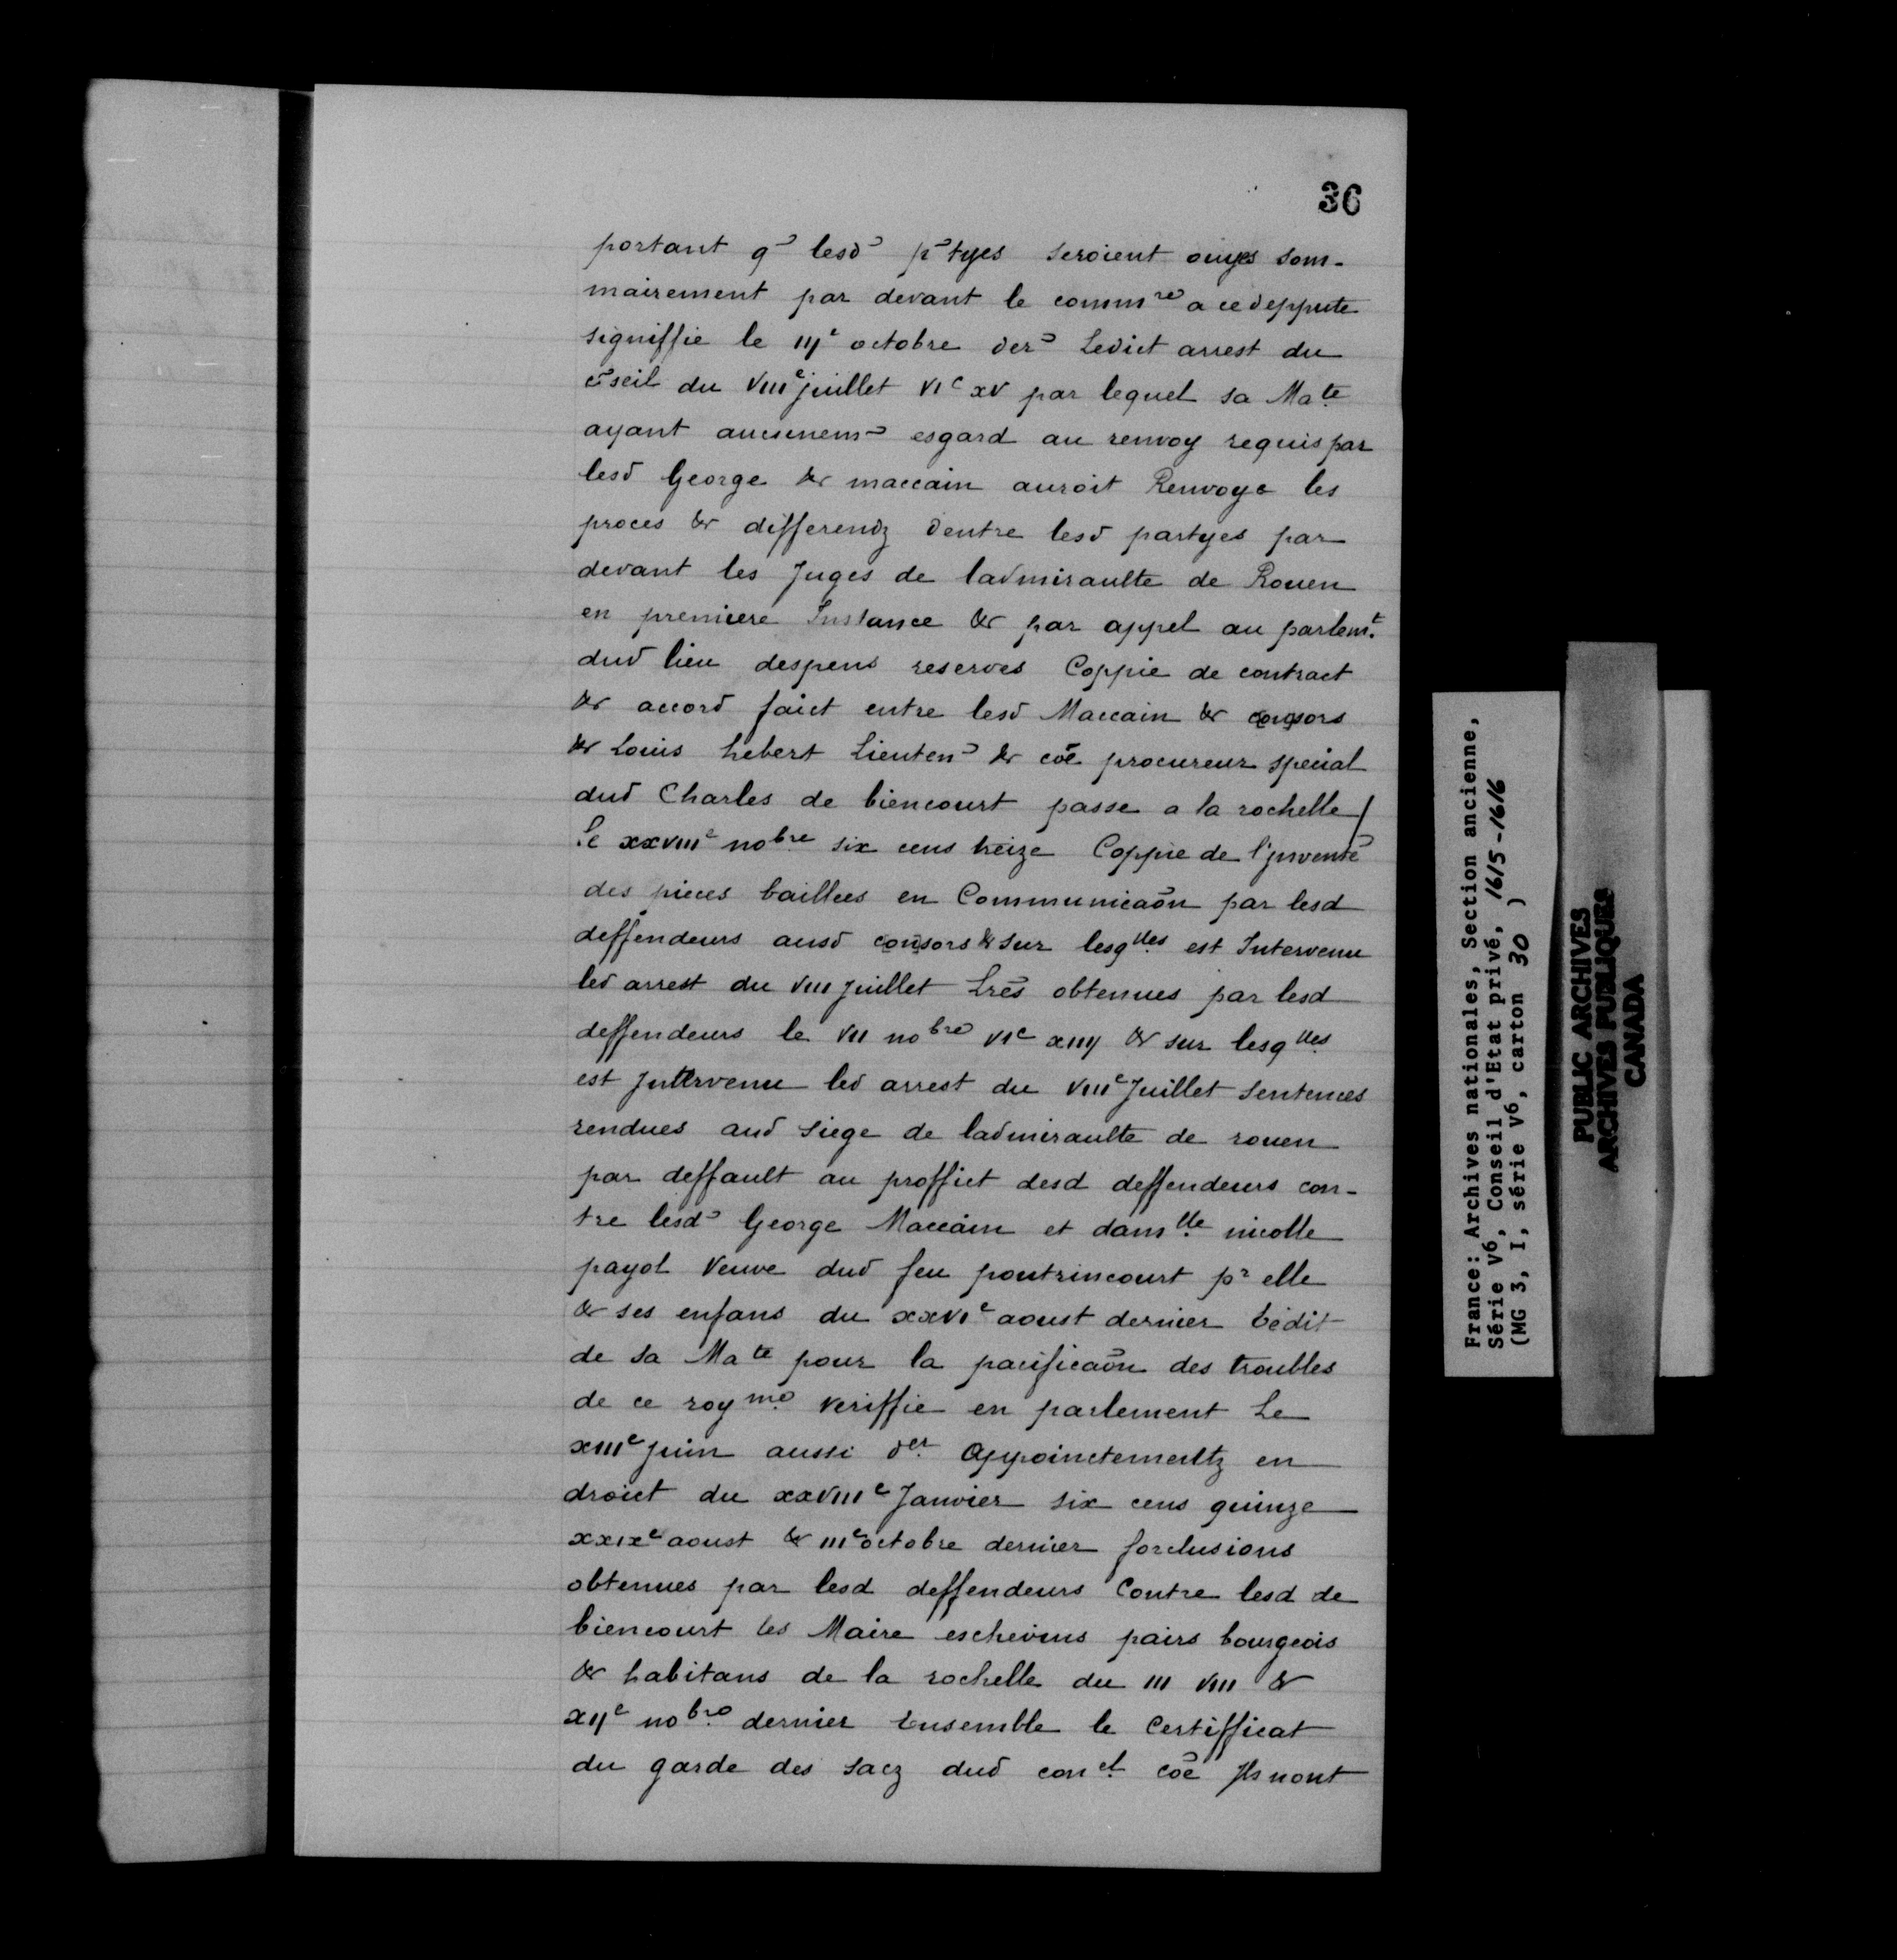 36
portant q̄ lesd̄ p̄tyes seroient ouyes som-
mairement par devant le commre a ce deppute
signiffie le IIJe octobre der̄ Ledict arrest du
c̄seil du VIIIe juillet VIc XV par lequel sa Mate
ayant aucunem̄ esgard au renvoy requis par
lesd George & maccain auroit Renvoye les
proces & differendz dentre lesd partyes par
devant les Juges de ladmiraulte de Rouen
en premiere Instance & par appel au parlemt.
dud lieu despens reserves Coppie de contract
& accord faict entre lesd Maccain & consors
& Louis hebert Lieuten̄ & cōe procureur special
dud Charles de biencourt passe a la rochelle /
Le XXVIIIe nobre six cens treize Coppie de l'jnvent̄e
des pieces baillees en Communicaōn par lesd
deffendeurs ausd consors & sur lesqlles est Intervenu
led arrest du VIII juillet Lr̄es obtenues par lesd
deffendeurs le VII nobre VIc XIIJ & sur lesqlles
est Jntervenu led arrest du VIIIe Juillet Sentences
rendues aud siege de ladmiraulte de rouen
par deffault au proffict desd deffendeurs con-
tre lesd̄ George Maccain et damlle nicolle
payol Veuve dud feu poutrincourt pr elle
& ses enfans du XXVIe aoust dernier Lédit
de sa Mate pour la pacificaōn des troubles
de ce royme veriffie en parlement Le
XIIIe juin aussi der. Appoinctementz en
droict du XXVIIIe Janvier six cens quinze
XXIXe aoust & IIIe octobre dernier forclusions
obtenues par lesd deffendeurs Contre lesd de
biencourt les Maire eschevins pairs bourgeois
& habitans de la rochelle du III VIII &
XIJe nobre dernier Ensemble le Certifficat
du garde des sacz dud conel cōe Jls nont
France: Archives nationales, Section ancienne,
Série V6, Conseil d'Etat privé, 1615-1616
(MG 3, I, série V6, carton 30 )
PUBLIC ARCHIVES
ARCHIVES PUBLIQUES
CANADA